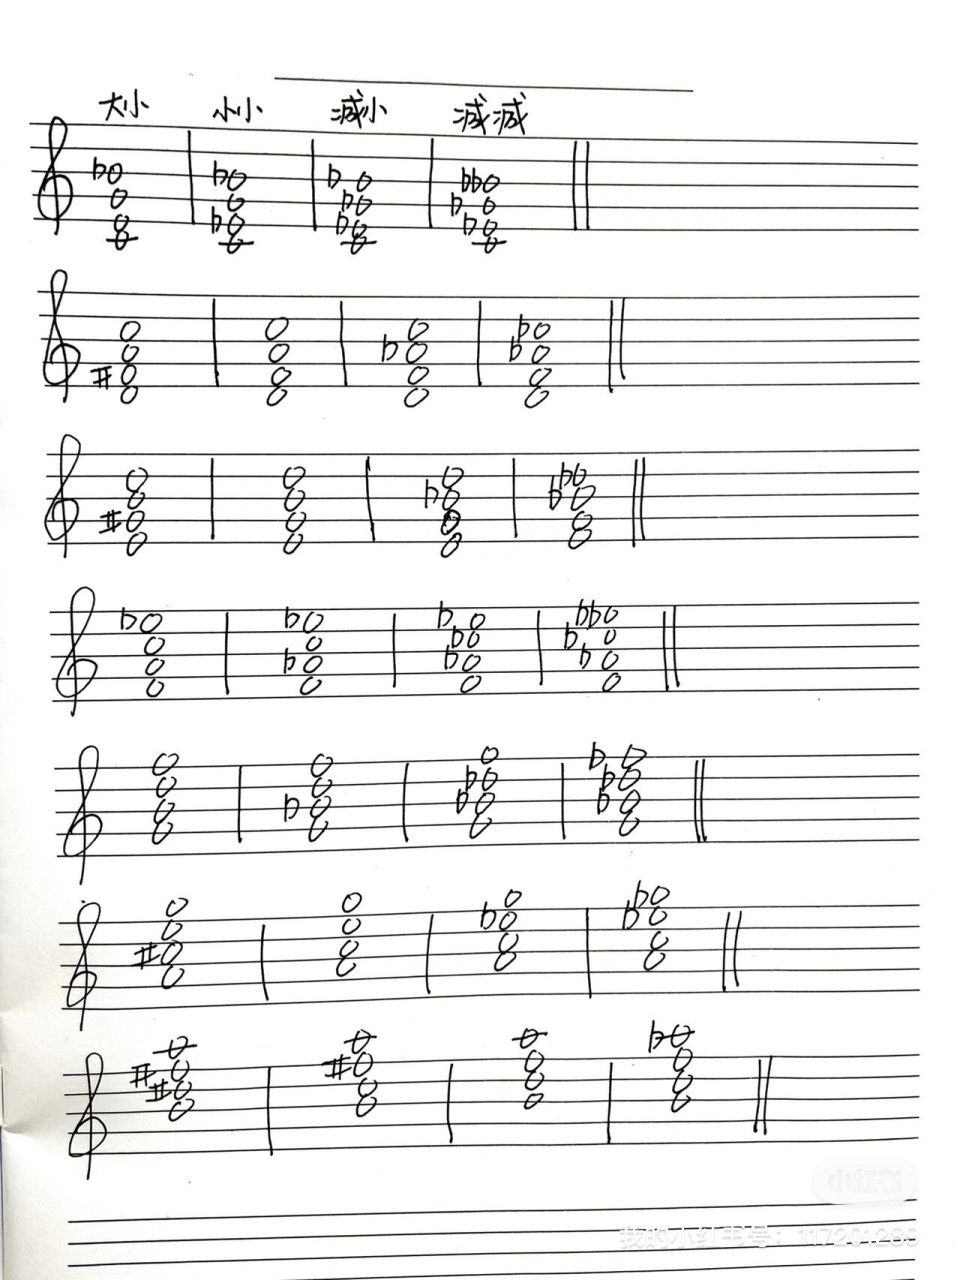 大小 小小 减小 减减
小红书
我的小红书号：117201280